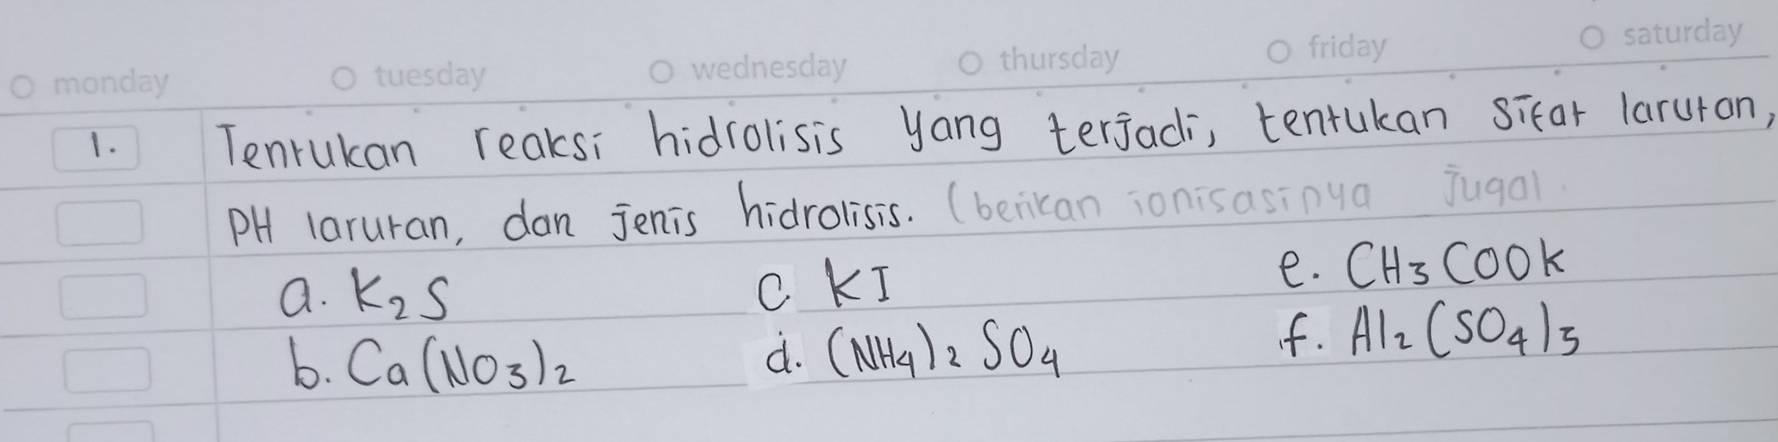 monday tuesday wednesday thursday friday saturday
1. Tentukan reaksi hidrolisis yang terjadi, tentukan sifat larutan,
PH larutan, dan jenis hidrolisis. (berikan ionisasinya juga)
a. K₂S c. KI e. CH₃COOK
b. Ca(NO₃)₂ d. (NH₄)₂SO₄ f. Al₂(SO₄)₃